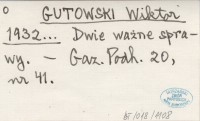 o GUTOWSKI Wiktor
1932... Dwie ważne spra-
wy. — Gaz. Podh. 20,
nr 41.